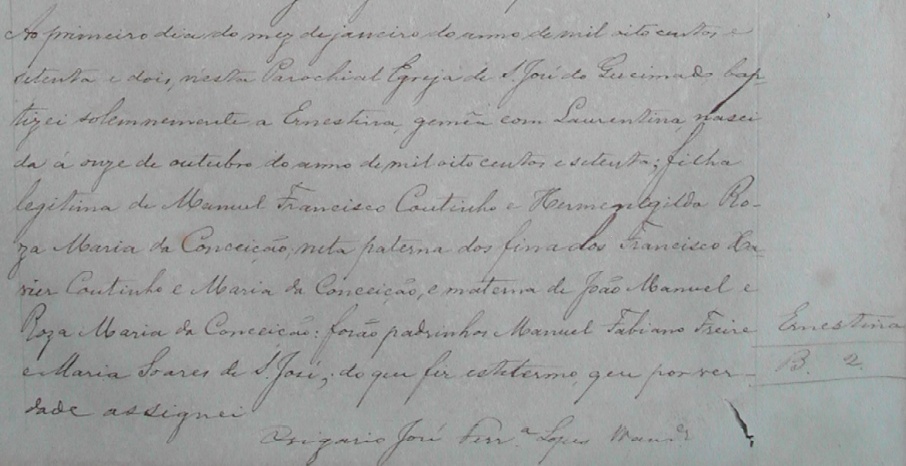 Ao primeiro dia do mez de janeiro do anno de mil oito centos e
setenta e dois, nesta Parochial Egreja de S. José do Queimado, bap-
tizei solemnemente a Ernestina, gemea com Laurentina, nasci
da á onze de outubro do anno de mil oito centos e setenta; filha
legitima de Manuel Francisco Coutinho e Hermenegilda Ro-
za Maria da Conceição, neta paterna dos finados Francisco Xa-
vier Coutinho e Maria da Conceição, e materna de João Manuel e
Roza Maria da Conceição: forão padrinhos Manuel Fabiano Freire
e Maria Soares de S. José; do que fiz este termo, que por ver-
dade assignei
O vigario José Ferr.ª Lopes
Ernestina
B. 2.